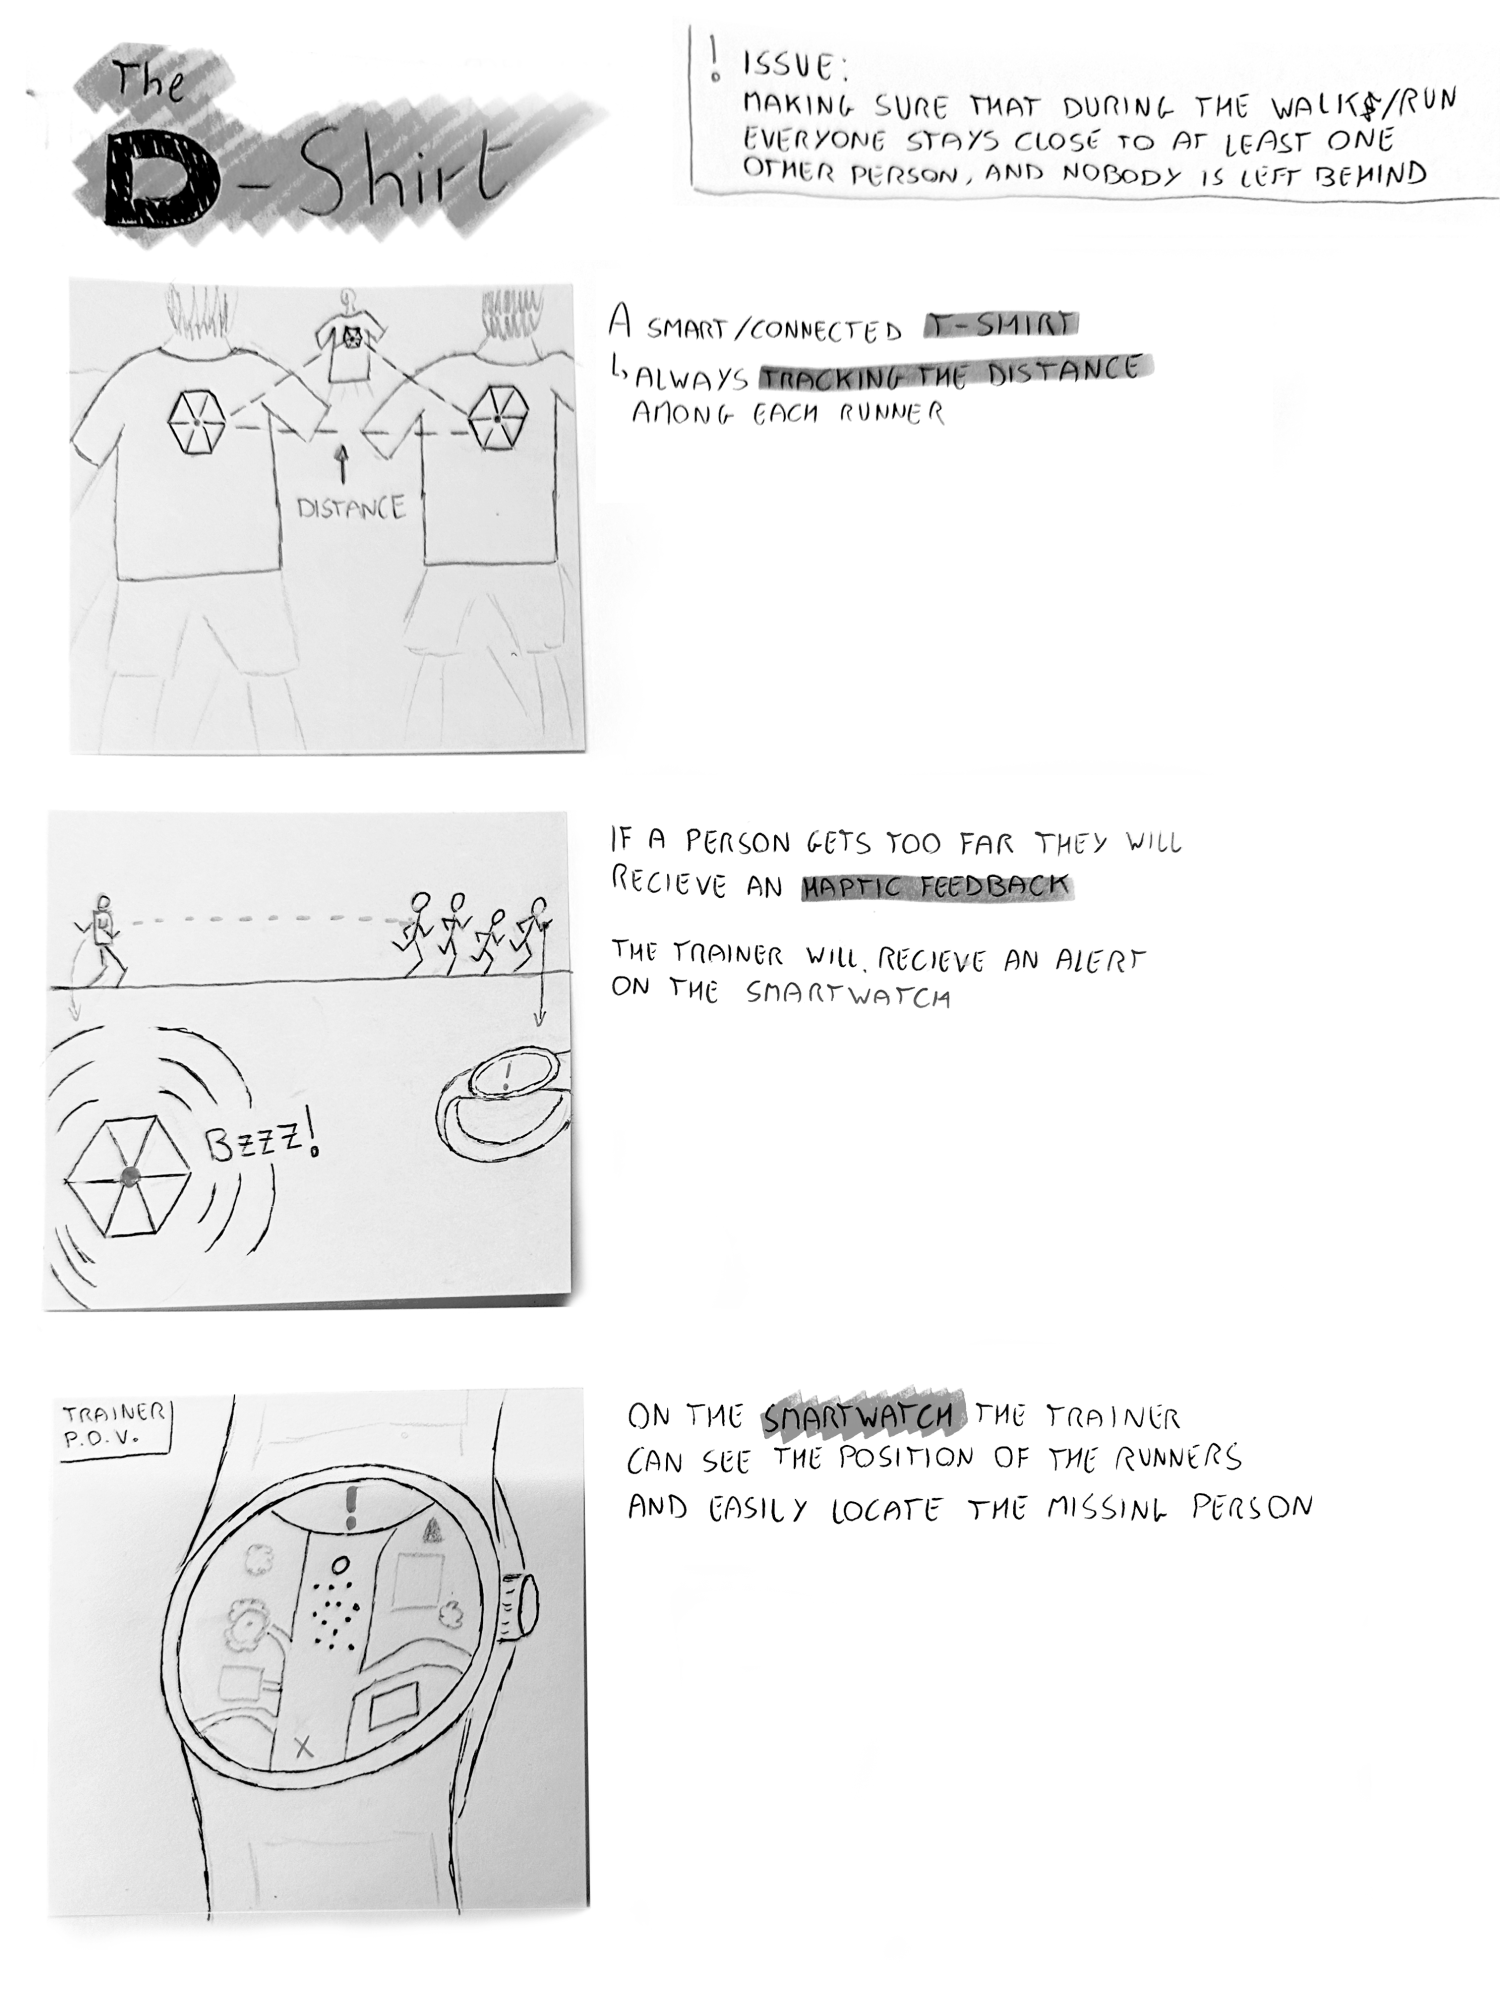 The
D-Shirt
! ISSUE:
MAKING SURE THAT DURING THE WALK/RUN
EVERYONE STAYS CLOSE TO AT LEAST ONE
OTHER PERSON, AND NOBODY IS LEFT BEHIND
DISTANCE
A SMART/CONNECTED T-SHIRT
↳ ALWAYS TRACKING THE DISTANCE
AMONG EACH RUNNER
IF A PERSON GETS TOO FAR THEY WILL
RECIEVE AN HAPTIC FEEDBACK
THE TRAINER WILL RECIEVE AN ALERT
ON THE SMARTWATCH
!
BZZZ!
TRAINER
P.O.V.
!
X
ON THE SMARTWATCH THE TRAINER
CAN SEE THE POSITION OF THE RUNNERS
AND EASILY LOCATE THE MISSING PERSON